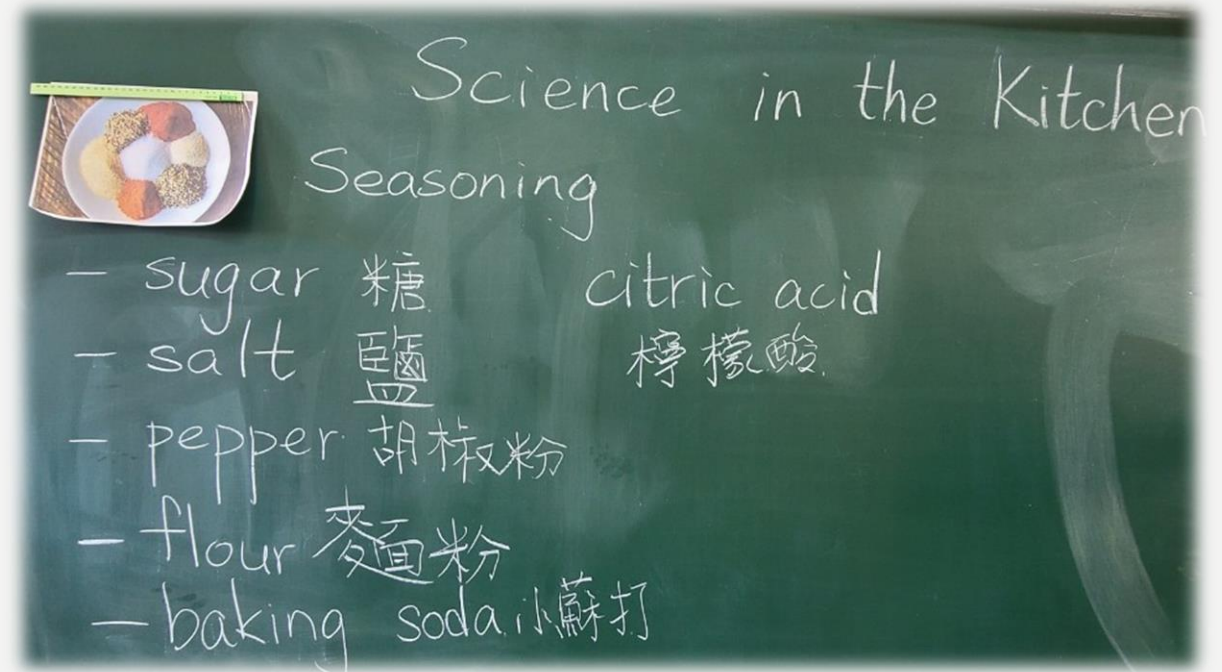 Science in the Kitchen
Seasoning
- sugar 糖
- salt 鹽
- pepper 胡椒粉
- flour 麵粉
- baking soda 小蘇打
citric acid
檸檬酸